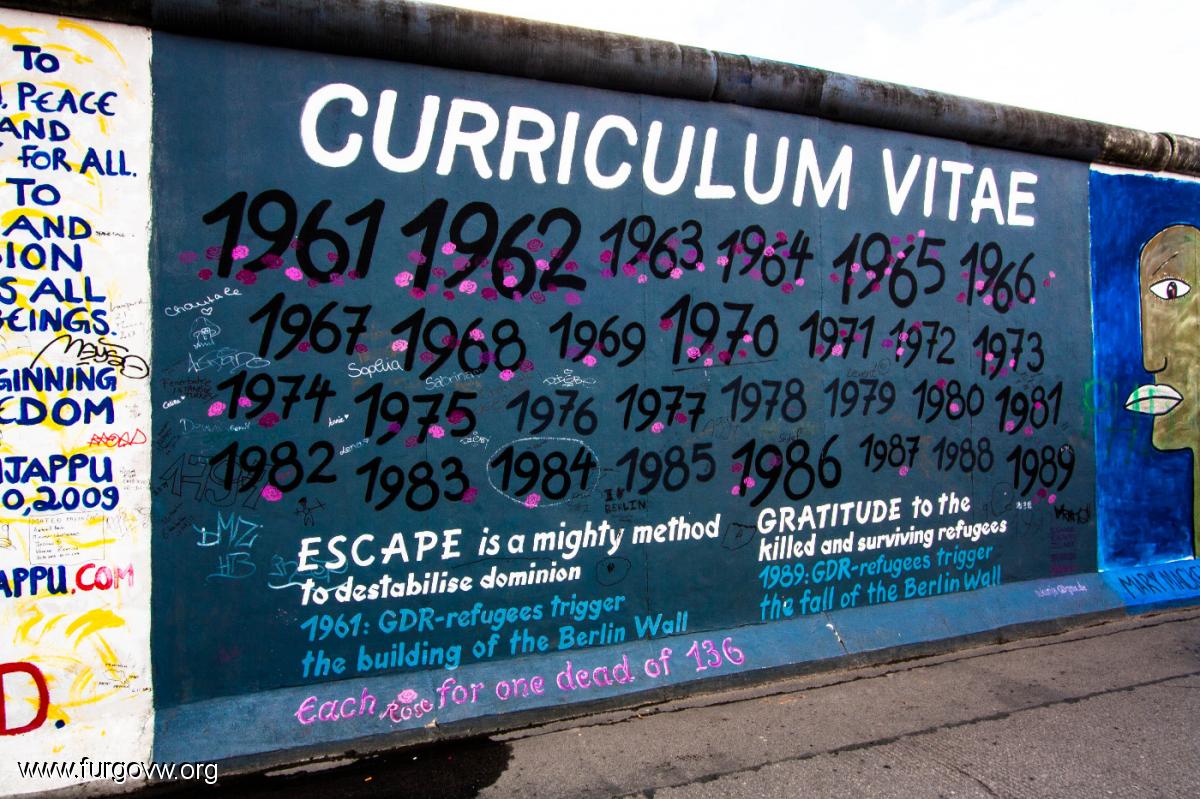 TO
PEACE
AND
FOR ALL.
TO
AND
ALL
BEINGS.
TAPPU
2009
APPU.COM
D.
CURRICULUM VITAE
1961 1962 1963 1964 1965 1966
1967 1968 1969 1970 1971 1972 1973
1974 1975 1976 1977 1978 1979 1980 1981
1982 1983 1984 1985 1986 1987 1988 1989
Chantale
Sophia
Sabrina
DMZ
HB
BERLIN
ESCAPE is a mighty method
to destabilise dominion
1961: GDR-refugees trigger
the building of the Berlin Wall
GRATITUDE to the
killed and surviving refugees
1989: GDR-refugees trigger
the fall of the Berlin Wall
Each Rose for one dead of 136
MARY
www.furgovw.org